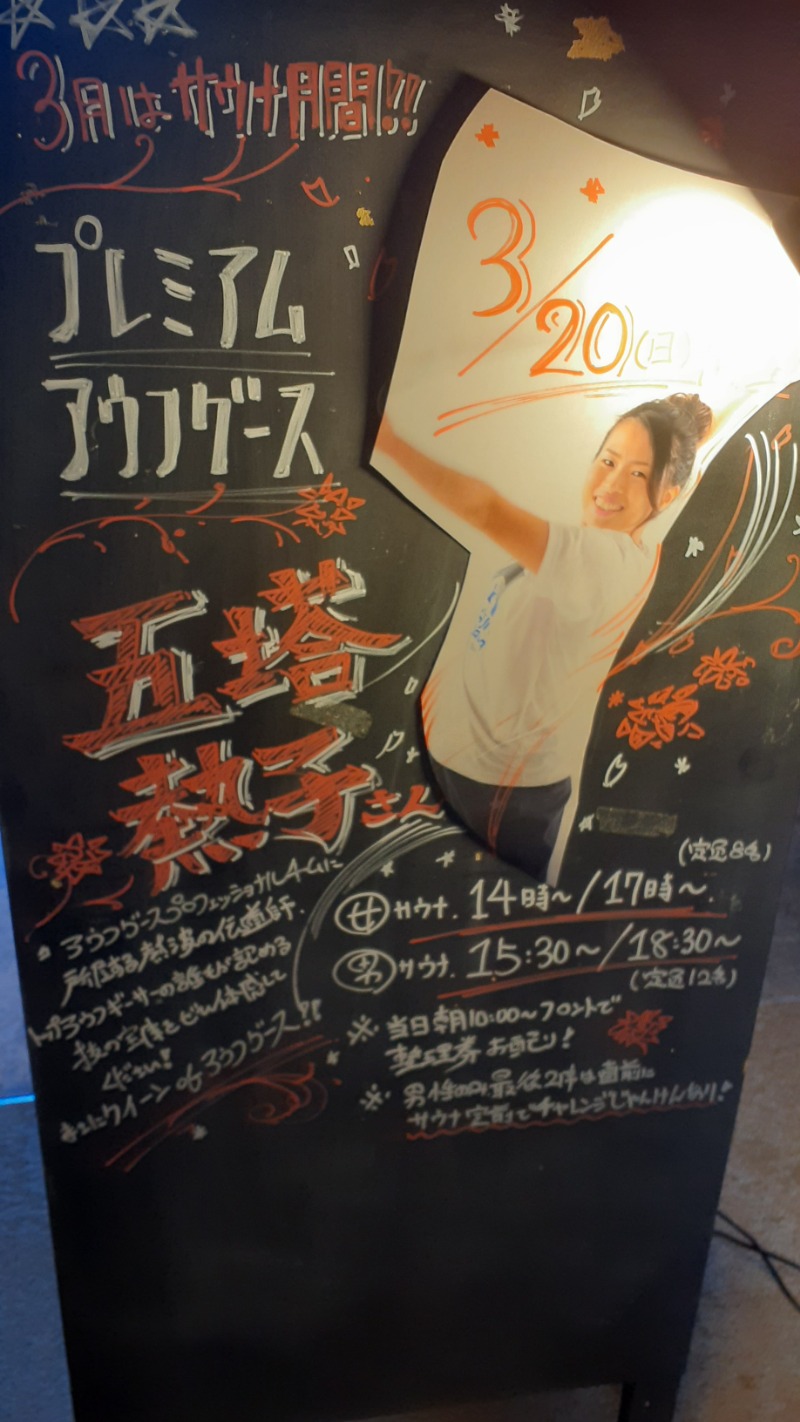 3月はサウナ月間!!
3/20(日)
プレミアム
アウフグース
五塔
熱子さん
アウフグースプロフェッショナルチームに
所属する熱波の伝道師.
トップアウフギーサーの誰もが認める
技の完成をぜひ体感して
ください!
まさにクイーン of アウフグース!!
(定員8名)
女 サウナ. 14時~/17時~.
男 サウナ. 15:30~/18:30~
(定員12名)
※ 当日朝10:00~フロントで
整理券お配り!
※ 男性のみ最後2枠は直前に
サウナ室前でチャレンジじゃんけんあり!